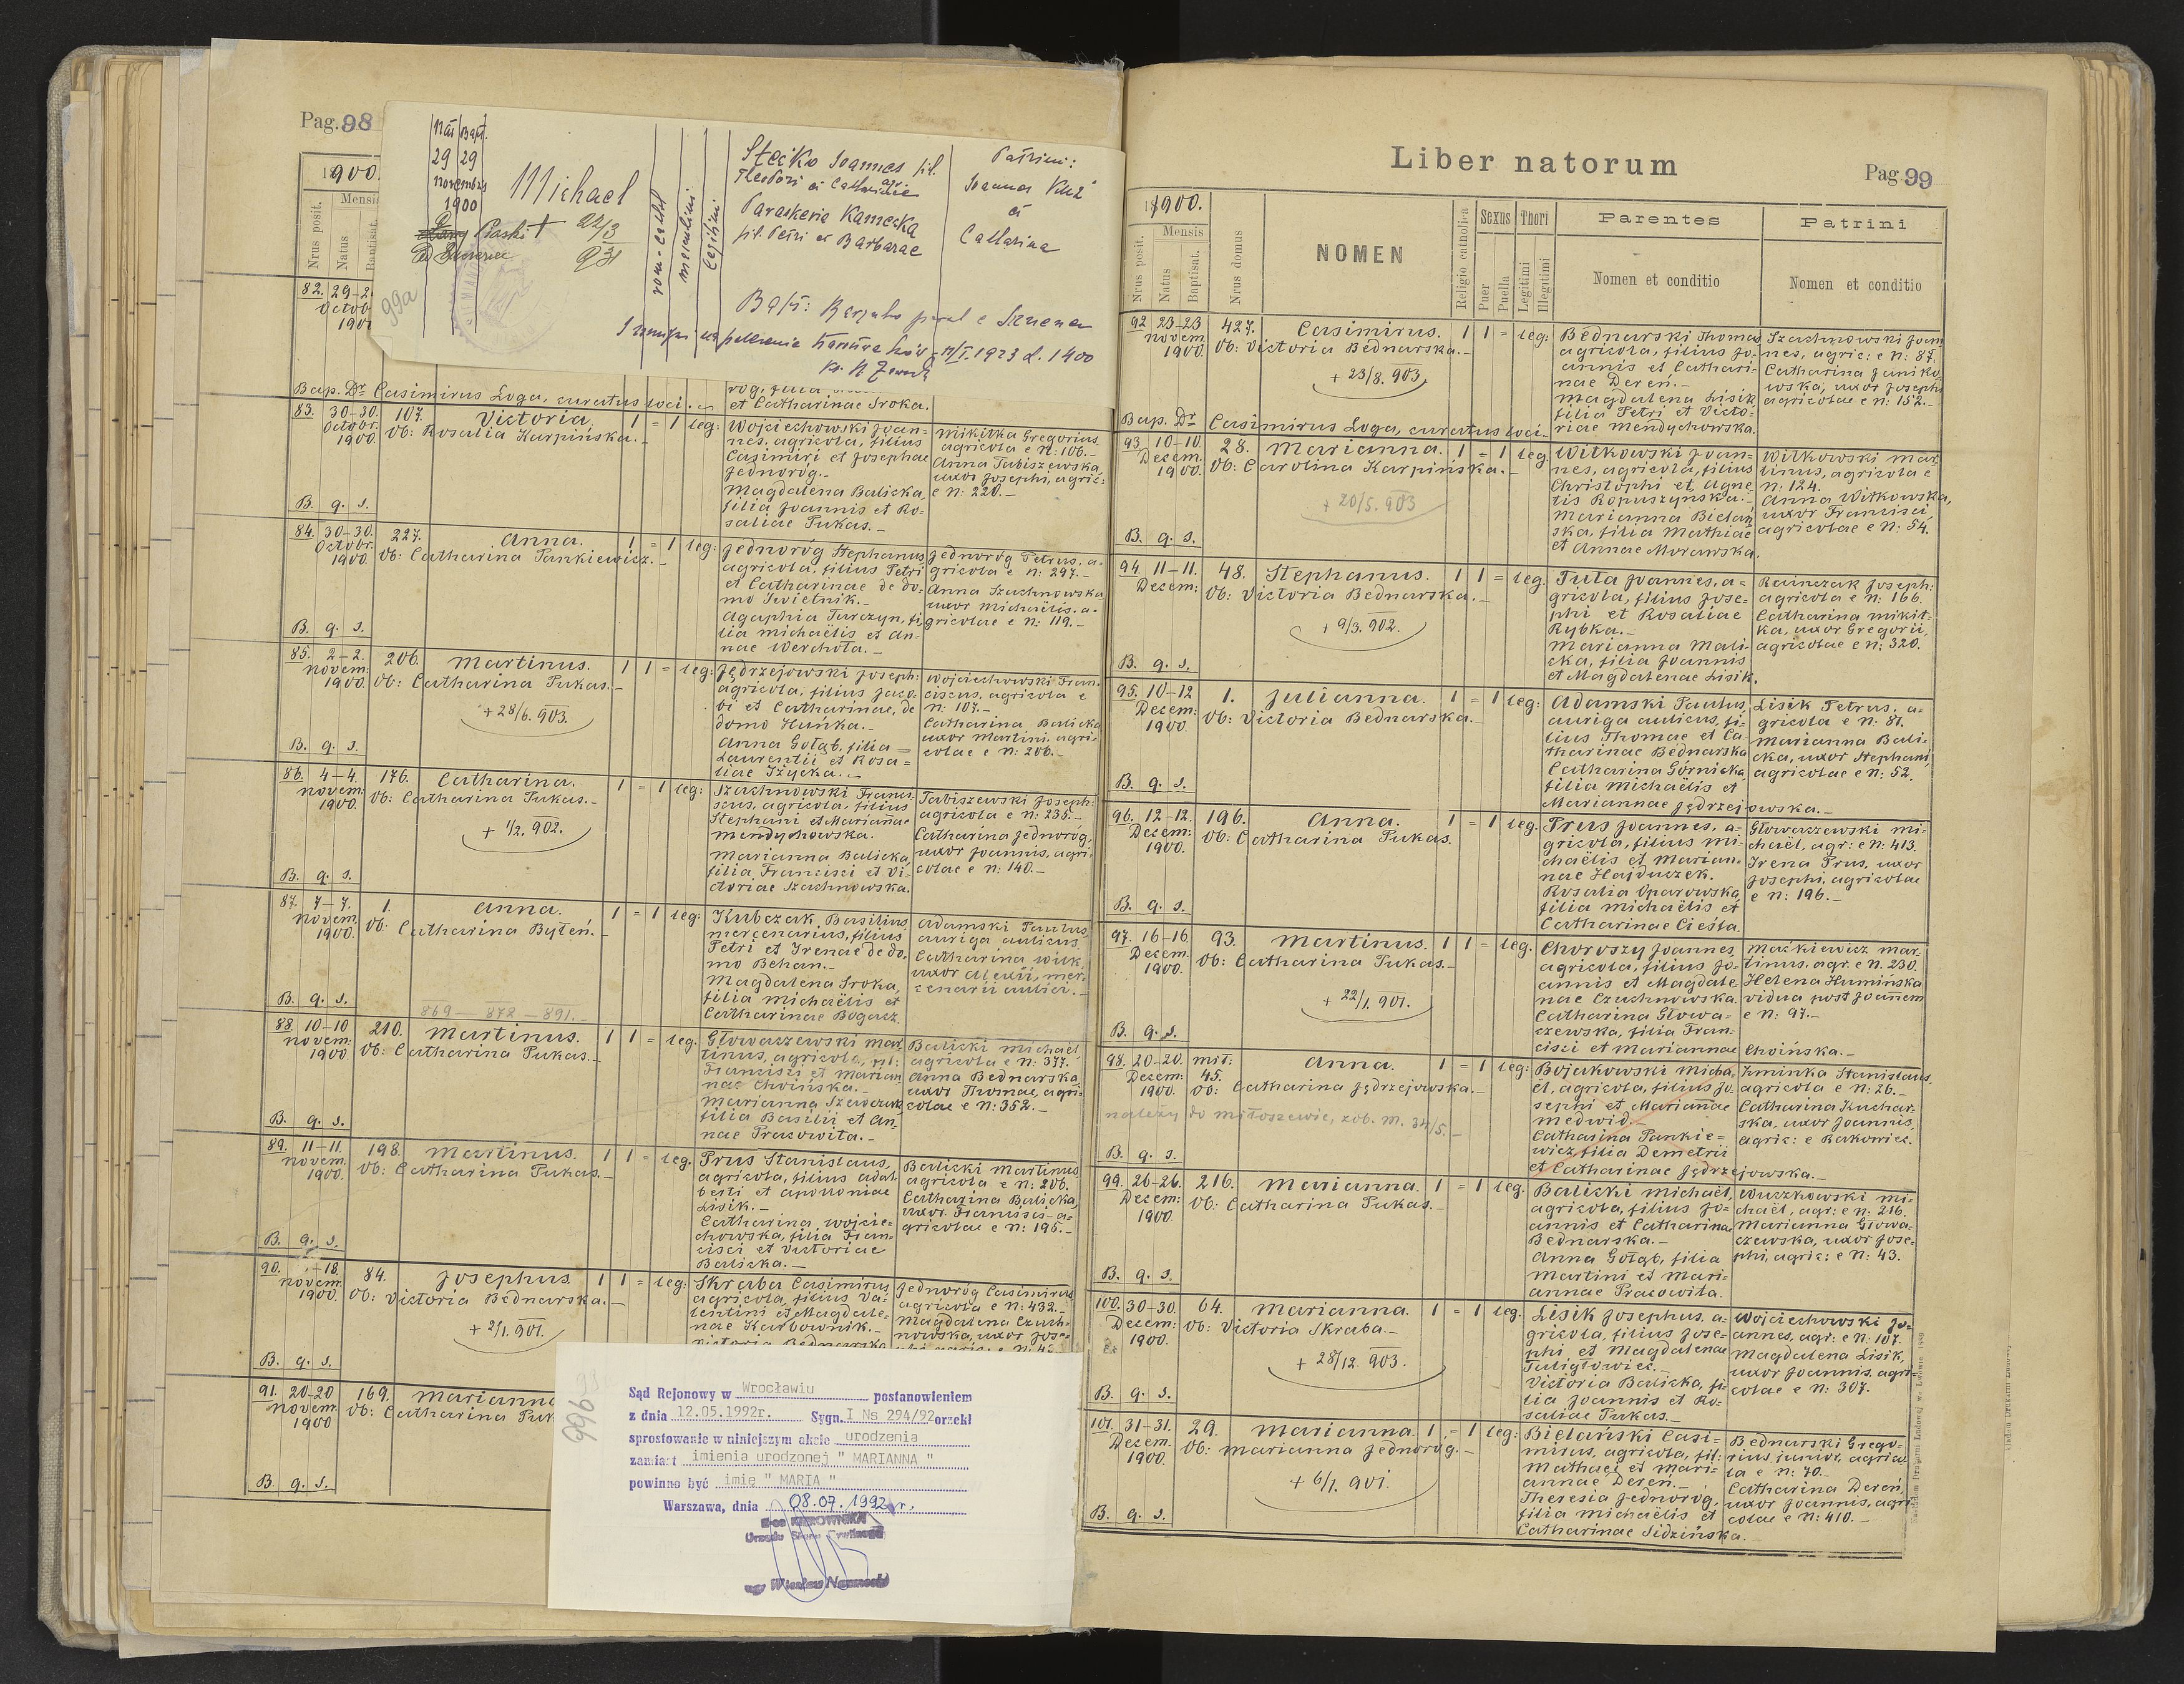 Pag. 98
1900.
Mensis
Nrus posit.
Natus
82. 29-2
Octob
190
Nat Bapt.
29 29
novembris
1900
Michael
22/3
931
rom-cath
masculini
legitimi
Stecko Joannes fil.
Theodori et Catharinae
Paraskevia Kamecka
fil. Petri et Barbarae
Patrini:
Joannes Kuź
et
Catharina
99a
Bap. Dr Casimirus Loga, curatus loci.
et Catharinae Sroka.
83. 30-30. 107. Victoria. 1 = 1 leg:
Octobr. Ob: Rosalia Karpińska.
1900.
Wojciechowski Joan=
nes, agricola, filius
Casimiri et Josephae
Jednoróg.-
Magdalena Balicka,
filia Joannis et Ro=
saliae Pukas.-
Mikitka Gregorius
agricola e N: 106.-
Anna Tabiszewska,
uxor Josephi, agric:
e n: 220.-
B. q. s.
84. 30-30. 227. Anna. 1 = 1 leg:
Octobr. Ob: Catharina Pankiewicz.-
1900.
Jednoróg Stephanus
agricola, filius Petri
et Catharinae de do=
mo Kwietnik.-
Agaphia Turczyn, fi
lia Michaëlis et An=
nae Werchoła.-
Jednoróg Petrus, a=
gricola e n: 297.-
Anna Szachnowska
uxor Michaëlis, a=
gricolae e n: 119.-
B. q. s.
85. 2-2. 206. Martinus. 1 1 = leg:
Novem: Ob: Catharina Pukas.-
1900.
+ 28/6. 903.
Jędrzejowski Joseph:
agricola, filius Jaco=
bi et Catharinae, de
domo Huńka.-
Anna Gołąb, filia =
Laurentii et Rosa=
liae Iżycka.-
Wojciechowski Fran=
ciscus, agricola e
n: 107.-
Catharina Balicka
uxor Martini, agri=
colae e n: 206.-
B. q. s.
86. 4-4. 176. Catharina. 1 = 1 leg:
Novem: Ob: Catharina Pukas.-
1900.
+ 1/2. 902.
Szachnowski Franci
scus, agricola, filius
Stephani et Mariannae
Mendychowska.
Marianna Balicka,
filia Francisci et Vi=
ctoriae Szachnowska.
Tabiszewski Joseph:
agricola e n: 235.-
Catharina Jednoróg,
uxor Joannis, agri=
colae e n: 140.-
B. q. s.
87. 7-7. 1. Anna. 1 = 1 leg:
Novem. Ob. Catharina Byteń.-
1900.
Kubczak Basilius,
mercenarius, filius
Petri et Irenae de do=
mo Behan.-
Magdalena Sroka,
filia Michaëlis et
Catharinae Bogacz.
Adamski Paulus
auriga aulicus.
Catharina Wilk,
uxor Alexii, mer=
cenarii aulici.-
B. q. s.
869 - 872 - 891.-
88. 10-10 210. Martinus. 1 1 = leg.
Novem: Ob: Catharina Pukas.-
1900
Głowaczewski Mar
tinus, agricola, fil:
Francisci et Marian
nae Choińska.-
Marianna Szewczuk
filia Basilii et An=
nae Pracowita.-
Balicki Michaël,
agricola e n: 377.
Anna Bednarska,
uxor Thomae, agri=
colae e n: 352.-
B. q. s.
89. 11-11. 198. Martinus. 1 1 = leg.
Novem. Ob: Catharina Pukas.-
1900.
Prus Stanislaus,
agricola, filius Adal
berti et Apoloniae
Lisik.-
Catharina Wojcie=
chowska, filia Fran=
cisci et Victoriae
Balicka.-
Balicki Martinus
agricola e n: 206.
Catharina Balicka,
uxor Francisci a=
gricolae e n: 195.-
B. q. s.
90. -18. 84. Josephus. 1 1 = leg:
Novem. Ob: Victoria Bednarska.-
1900.
+ 2/1. 901.
Skraba Casimirus,
agricola, filius Va=
lentini et Magdale=
nae Karbownik.-
Victoria Bednarska
Jednoróg Casimirus
agricola e n: 432.-
Magdalena Czuch=
nowska, uxor Jose=
B. q. s.
91. 20-20 169. Marianna
Novem. Ob: Catharina Puk
1900
B. q. s.
99b
Sąd Rejonowy w Wrocławiu postanowieniem
z dnia 12.05.1992r. Sygn. I Ns 294/92 orzekł
sprostowanie w niniejszym akcie urodzenia
zamiast imienia urodzonej " MARIANNA "
powinno być imię " MARIA "
Warszawa, dnia 08.07.1992 r.
Z-ca KIEROWNIKA
Urzędu Stanu Cywilnego
Liber natorum
Pag. 99
1900.
Mensis
Nrus posit.
Natus
Baptisat.
Nrus domus
NOMEN
Religio catholica
Sexus
Puer
Puella
Thori
Legitimi
Illegitimi
Parentes
Nomen et conditio
Patrini
Nomen et conditio
92 23-23 427. Casimirus. 1 1 = leg:
Novem. Ob: Victoria Bednarska.-
1900.
+ 23/8. 903.
Bednarski Thomas
agricola, filius Jo=
annis et Cathari=
nae Dereń.-
Magdalena Lisik
filia Petri et Victo=
riae Mendychowska.
Szachnowski Joan
nes, agric: e n: 87.
Catharina Janiko
wska, uxor Josephi
agricolae e n: 152.-
Bap. Dr Casimirus Loga, curatus loci.
93. 10-10. 28. Marianna. 1 = 1 leg.
Decem. Ob: Carolina Karpińska.-
1900.
+ 20/5. 903
Witkowski Joan=
nes, agricola, filius
Christophi et Agne
tis Kopuszynska.-
Marianna Bielań
ska, filia Mathiae
et Annae Morawska.
Witkowski Mar
tinus, agricola e
n: 124.
Anna Witkowska,
uxor Francisci,
agricolae e N: 54.
B. q. s.
94. 11-11. 48. Stephanus. 1 1 = leg.
Decem: Ob: Victoria Bednarska.-
+ 9/3. 902.
Tuła Joannes, a=
gricola, filius Jose=
phi et Rosaliae
Rybka.-
Marianna Mali=
cka, filia Joannis
et Magdalenae Lisik.
Rainczak Joseph:
agricola e n: 166.
Catharina Mikit=
ka, uxor Gregorii,
agricolae e n: 320.
B. q. s.
95. 10-12 1. Julianna. 1 = 1 leg:
Decem: Ob: Victoria Bednarska.-
1900.
Adamski Paulus,
auriga aulicus, fi=
lius Thomae et Ca=
tharinae Bednarska
Catharina Górnicka,
filia Michaëlis et
Mariannae Jędrzejowska.-
Lisik Petrus, a=
gricola e n: 87.
Marianna Bali=
cka, uxor Stephani,
agricolae e n: 52.
B. q. s.
96. 12-12. 196. Anna. 1 = 1 leg.
Decem: Ob: Catharina Pukas.
1900.
Prus Joannes, a=
gricola, filius Mi=
chaëlis et Marian=
nae Hajduczek.
Rosalia Oparowska
filia Michaëlis et
Catharinae Cieśla.
Głowaczewski Mi=
chaël, agr: e n: 413.
Irena Prus, uxor
Josephi, agricolae
e n: 196.-
B. q. s.
97. 16-16. 93. Martinus. 1 1 = leg.
Decem. Ob: Catharina Pukas.-
1900.
+ 22/1. 901.
Choroszy Joannes,
agricola, filius Jo=
annis et Magdale
nae Czuchnowska.
Catharina Głowa=
czewska, filia Fran=
cisci et Mariannae Choińska.-
Maćkiewicz Mar=
tinus, agr. e n. 230.
Helena Huminska
vidua post Joannem
e n: 97.-
B. q. s.
98. 20-20. mił: Anna. 1 = 1 leg:
Decem: 45.
1900. Ob: Catharina Jędrzejowska.-
należy do Miłoszewic, zob. M. 34/5.-
Bojakowski Micha
ël, agricola, filius Jo=
sephi et Mariannae
Medwid.-
Catharina Pankie=
wicz, filia Demetrii
et Catharinae Jędrzejowska.-
Kminka Stanislaus,
agricola e n: 26.-
Catharina Kuchar=
ska, uxor Joannis,
agric: e Rakowiec.
B. q. s.
99. 26-26. 216. Marianna. 1 = 1 leg.
Decem: Ob: Catharina Pukas.-
1900.
Balicki Michaël,
agricola, filius Jo=
annis et Catharinae
Bednarska.-
Anna Gołąb, filia
Martini et Mari=
annae Pracowita.
Waszkowski Mi=
chaël, agr: e n: 216.
Marianna Głowa=
czewska, uxor Jose=
phi, agric: e N: 43.
B. q. s.
100. 30-30. 64. Marianna. 1 = 1 leg.
Decem: Ob: Victoria Skraba.-
1900.
+ 28/12. 903.
Lisik Josephus, a=
gricola, filius Jose=
phi et Magdalenae
Tuligłowiec.-
Victoria Balicka, fi=
lia Joannis et Ro=
saliae Pukas.-
Wojciechowski Jo=
annes, agr: e n: 107.
Magdalena Lisik,
uxor Joannis, agri=
colae e n: 307.
B. q. s.
101. 31-31. 29. Marianna 1 = 1 leg:
Decem. Ob: Marianna Jednoróg.-
1900.
+ 6/1. 901.
Bielański Casi=
mirus, agricola, fil:
Mathaei et Mari=
annae Dereń.-
Theresia Jednoróg,
filia Michaëlis et
Catharinae Sidzińska.-
Bednarski Grego=
rius junior, agrico
la e n: 70.-
Catharina Dereń,
uxor Joannis, agri
colae e n: 410.-
B. q. s.